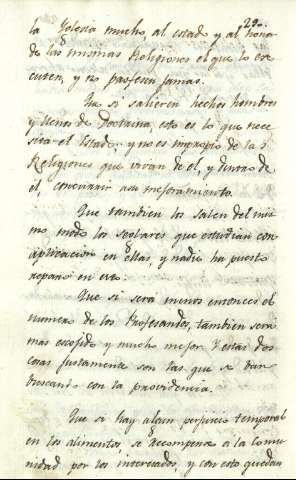 29.
la Yglesia mucho, al estado y al honor
de las mismas Religiones el que lo exe
cuten, y no profesen jamas.
Que si salieren hechos hombres
y llenos de Doctrina, esto es lo que nece
sita el Estado; y no es impropio de las
Religiones que vivan de el, y dentro de
el, concurrir a su mejoramiento.
Que tambien los salen del mis
mo modo los seglares que estudian con
aplicacion en ellas, y nadie ha puesto
reparo en eso.
Que si será menos entonces el
numero de los Profesandos, tambien sera
mas escojido y mucho mejor. Y estas dos
cosas justamente son las que se van
buscando con la providencia.
Que si hay algun perjuicio temporal
en los alimentos, se recompensa a la comu
nidad por los interesados, y con esto quedan